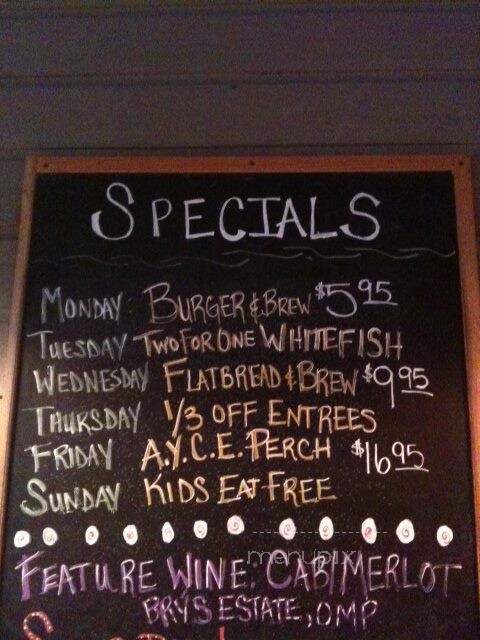 SPECIALS
MONDAY BURGER & BREW $5.95
TUESDAY TWO FOR ONE WHITEFISH
WEDNESDAY FLATBREAD & BREW $9.95
THURSDAY 1/3 OFF ENTREES
FRIDAY A.Y.C.E. PERCH $16.95
SUNDAY KIDS EAT FREE
menupix
FEATURE WINE: CAB/MERLOT
BRYS ESTATE, OMP